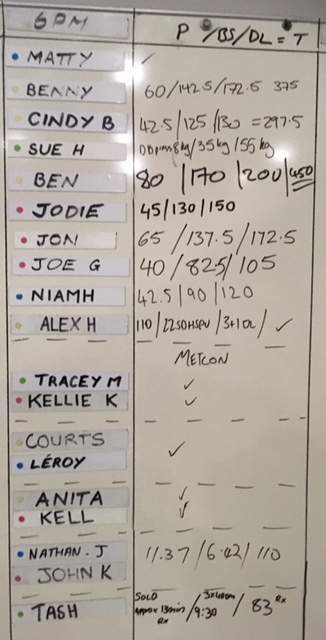 6PM P /BS/DL = T
MATTY ✓
BENNY 60/142.5/172.5 375
CINDY B 42.5/125/130 = 297.5
SUE H 8kg/35kg/55kg
BEN 80 /170 /200/450
JODIE 45/130/150
JON 65 /137.5/172.5
JOE G 40 /82.5/105
NIAMH 42.5/90/120
ALEX H 110/225OHSPU/3+1OL/ ✓
METCON
TRACEY M ✓
KELLIE K ✓
COURTS
LÉROY ✓
ANITA ✓
KELL ✓
NATHAN.J 11.37/6.42/110
JOHN K
TASH SOLO approx 13min Rx / 3x400m 9:30 / 83 Rx